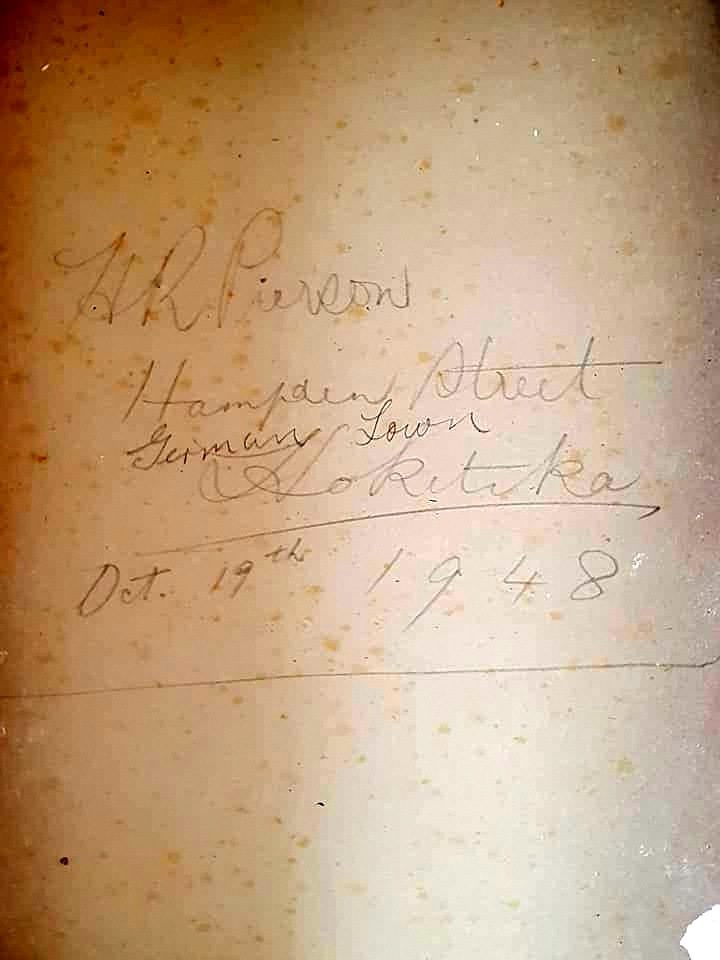 H R Pierson
Hampden Street
German Town
Hokitika
Oct. 19th 1948